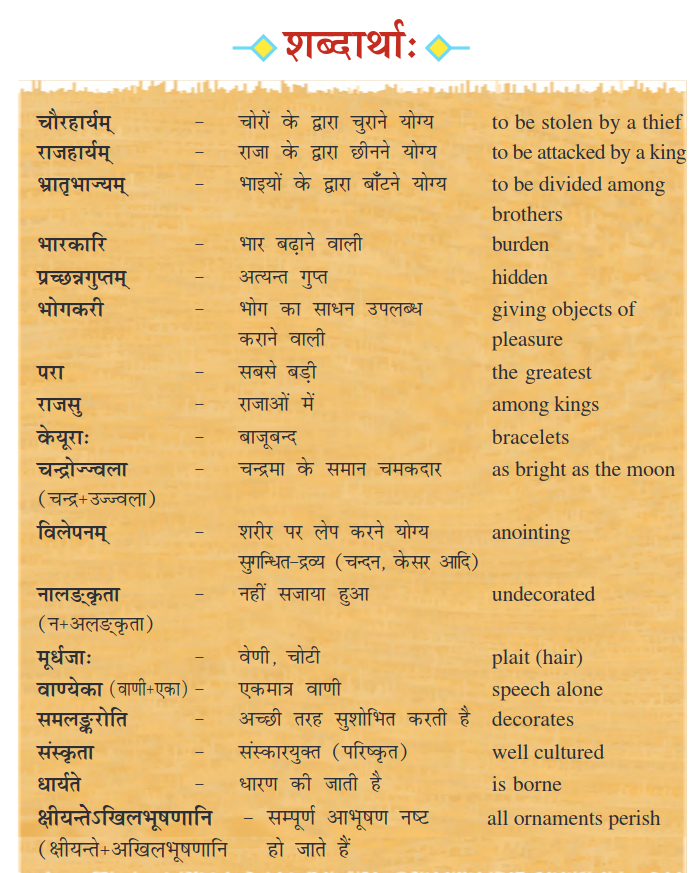 शब्दार्थाः
चौरहार्यम् – चोरों के द्वारा चुराने योग्य to be stolen by a thief
राजहार्यम् – राजा के द्वारा छीनने योग्य to be attacked by a king
भ्रातृभाज्यम् – भाइयों के द्वारा बाँटने योग्य to be divided among
brothers
भारकारि – भार बढ़ाने वाली burden
प्रच्छन्नगुप्तम् – अत्यन्त गुप्त hidden
भोगकरी – भोग का साधन उपलब्ध giving objects of
कराने वाली pleasure
परा – सबसे बड़ी the greatest
राजसु – राजाओं में among kings
केयूराः – बाजूबन्द bracelets
चन्द्रोज्ज्वला – चन्द्रमा के समान चमकदार as bright as the moon
(चन्द्र+उज्ज्वला)
विलेपनम् – शरीर पर लेप करने योग्य anointing
सुगन्धित-द्रव्य (चन्दन, केसर आदि)
नालङ्कृता – नहीं सजाया हुआ undecorated
(न+अलङ्कृता)
मूर्धजाः – वेणी, चोटी plait (hair)
वाण्येका (वाणी+एका) – एकमात्र वाणी speech alone
समलङ्करोति – अच्छी तरह सुशोभित करती है decorates
संस्कृता – संस्कारयुक्त (परिष्कृत) well cultured
धार्यते – धारण की जाती है is borne
क्षीयन्तेऽखिलभूषणानि – सम्पूर्ण आभूषण नष्ट all ornaments perish
(क्षीयन्ते+अखिलभूषणानि हो जाते हैं